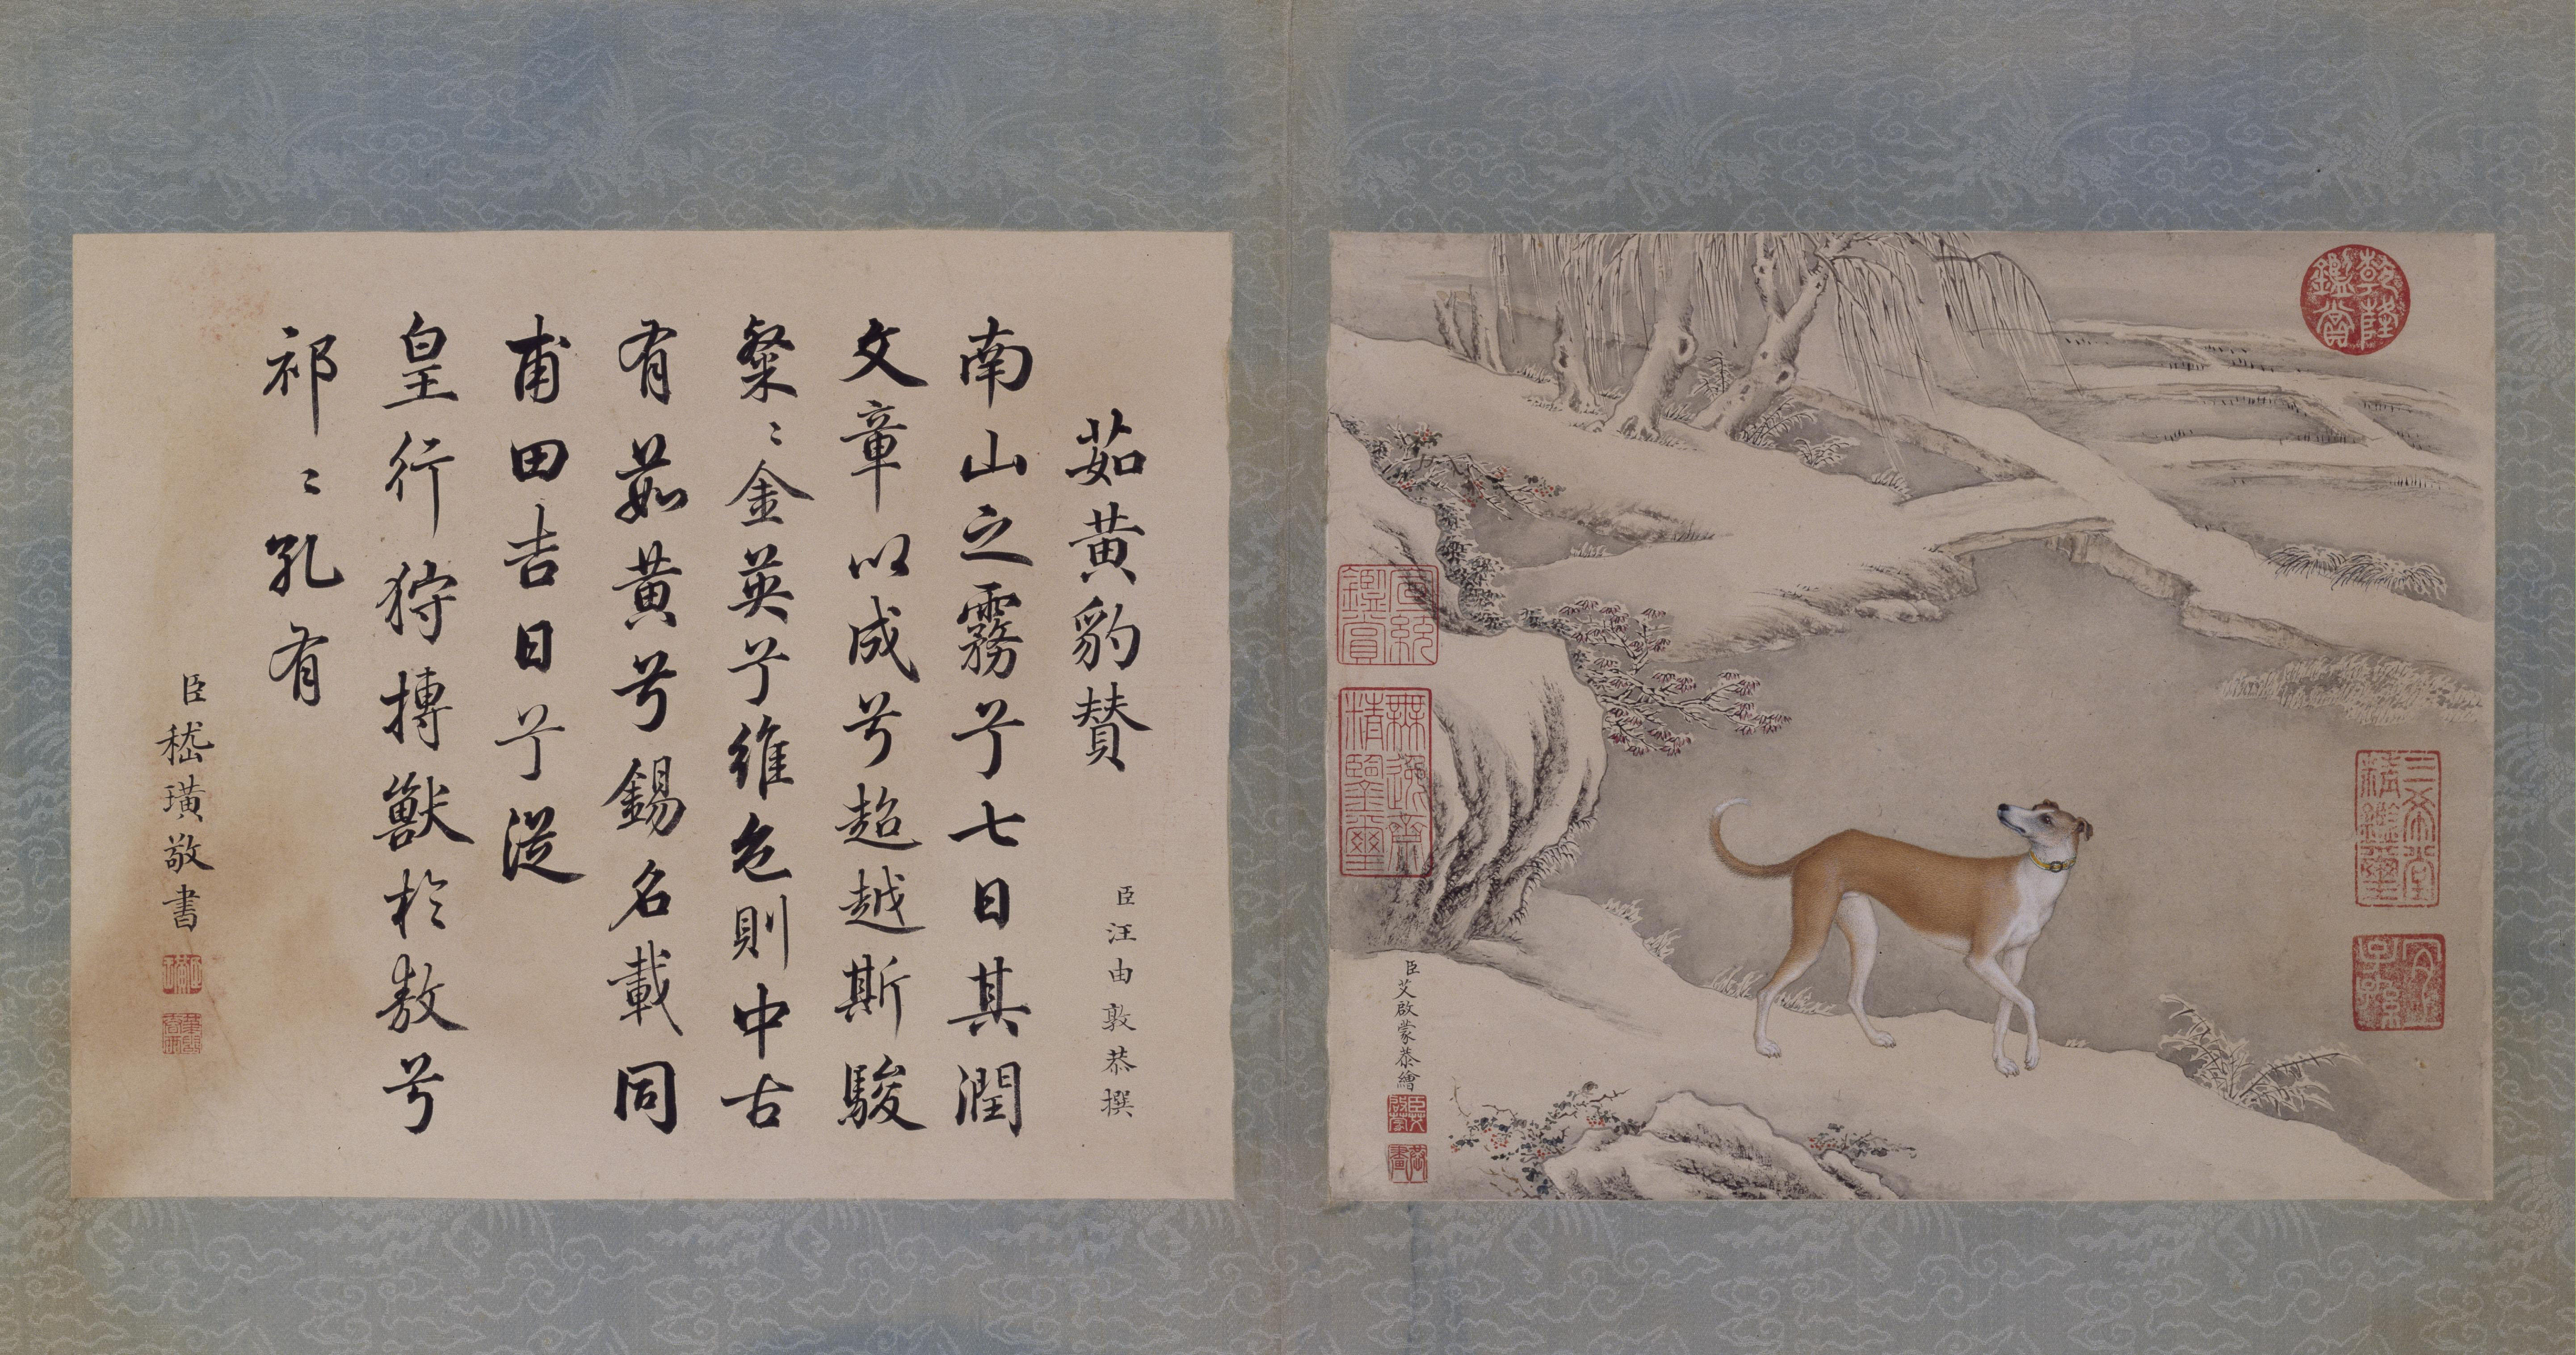 乾隆鑑賞
三希堂精鑑璽
宜子孫
宣統鑑賞
無逸齋精鑒璽
臣艾啟蒙恭繪
茹黃豹賛
臣汪由敦恭撰
南山之霧兮七日其潤
文章以成兮超越斯駿
粲〻金英兮維色則中古
有茹黃兮錫名載同
甫田吉日兮從
皇行狩搏獸於敖兮
祁〻孔有
臣嵇璜敬書